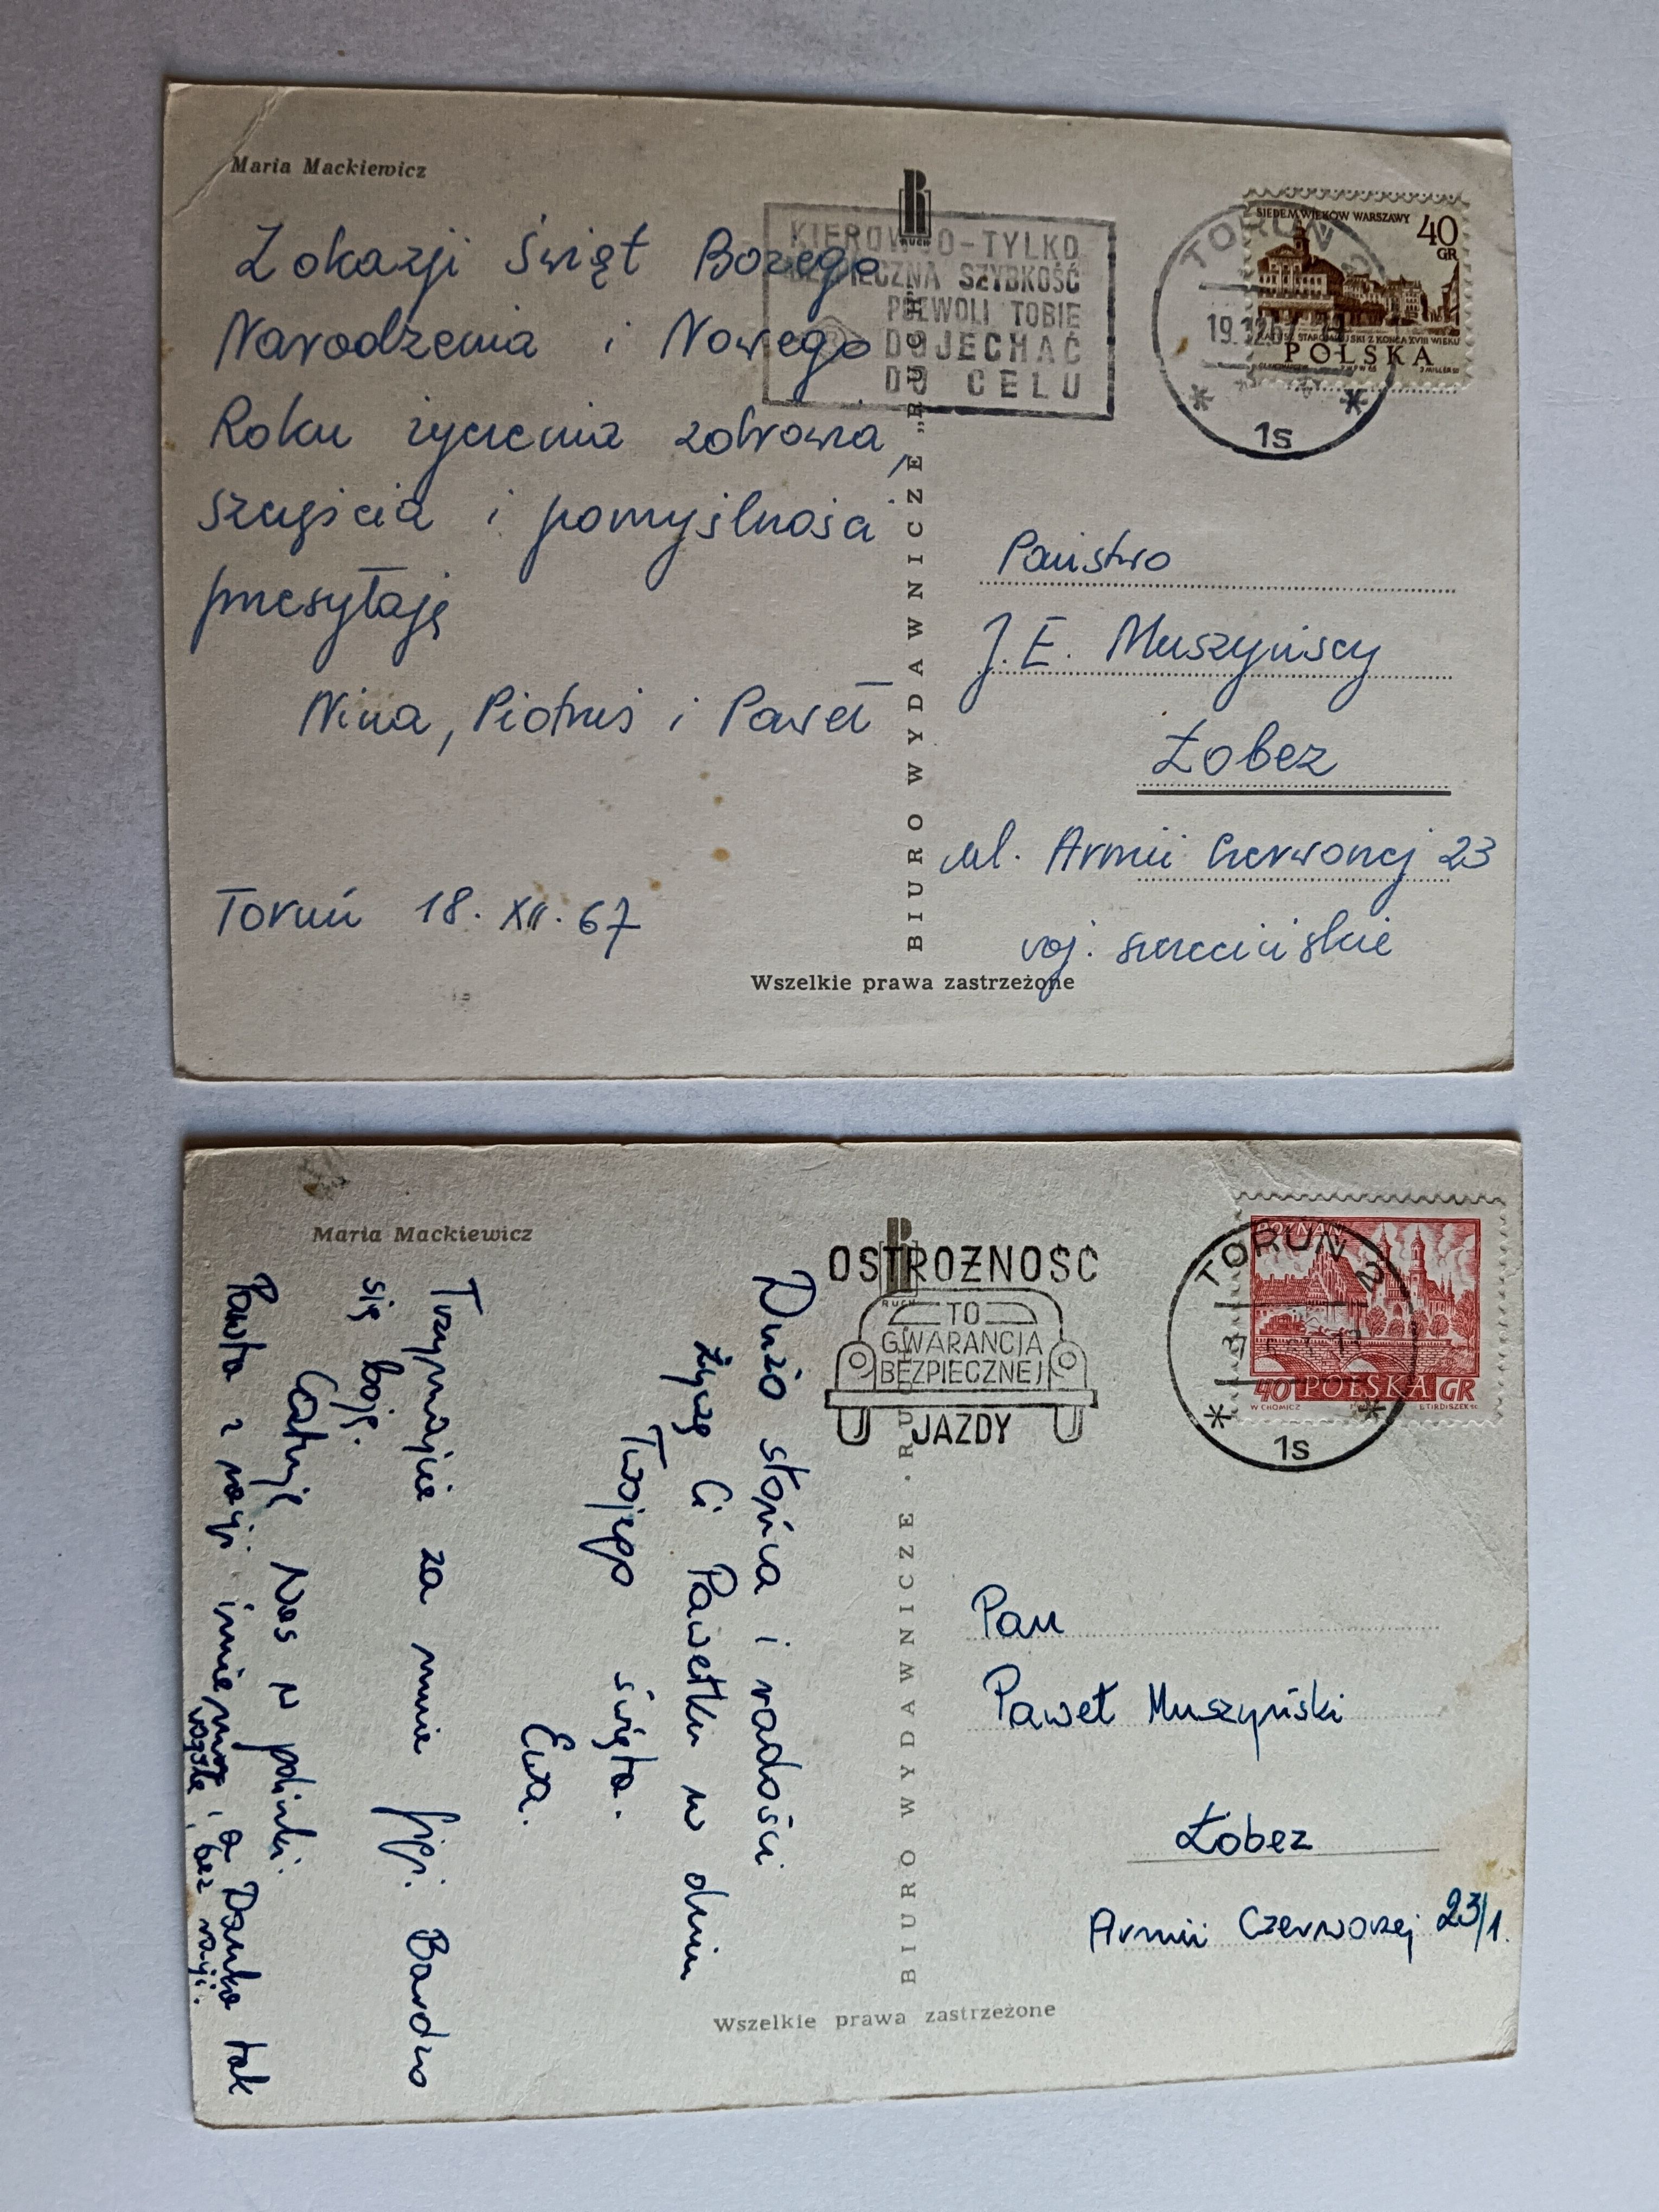 Maria Mackiewicz
Z okazji Świąt Bożego
Narodzenia i Nowego
Roku życzenia zdrowia,
szczęścia i pomyślności
przesyłają
Nina, Piotruś i Paweł
Toruń 18. XII. 67
RUCH
KIEROWCO-TYLKO
BEZPIECZNA SZYBKOŚĆ
POZWOLI TOBIE
DOJECHAĆ
DO CELU
TORUŃ 2
19.12.67
1s
SIEDEM WIEKÓW WARSZAWY 40
GR
POLSKA
BIURO WYDAWNICZE „RUCH"
Państwo
J. E. Muszyńscy
Łobez
ul. Armii Czerwonej 23
woj. szczecińskie
Wszelkie prawa zastrzeżone
Maria Mackiewicz
Dużo słońca i radości
życzę Ci Pawełku w dniu
Twojego święta.
Ewa.
Trzymajcie za mnie Bardzo
się boję.
Całuję Was w policzki.
Pawła z racji imienin, a Danka tak
zwykle, bez racji.
RUCH
OSTROŻNOŚĆ
TO
GWARANCJA
BEZPIECZNEJ
JAZDY
TORUŃ 2
1s
POZNAŃ
40 POLSKA GR
W.CHOMICZ
BIURO WYDAWNICZE · RUCH
Pan
Paweł Muszyński
Łobez
Armii Czerwonej 23/1.
Wszelkie prawa zastrzeżone